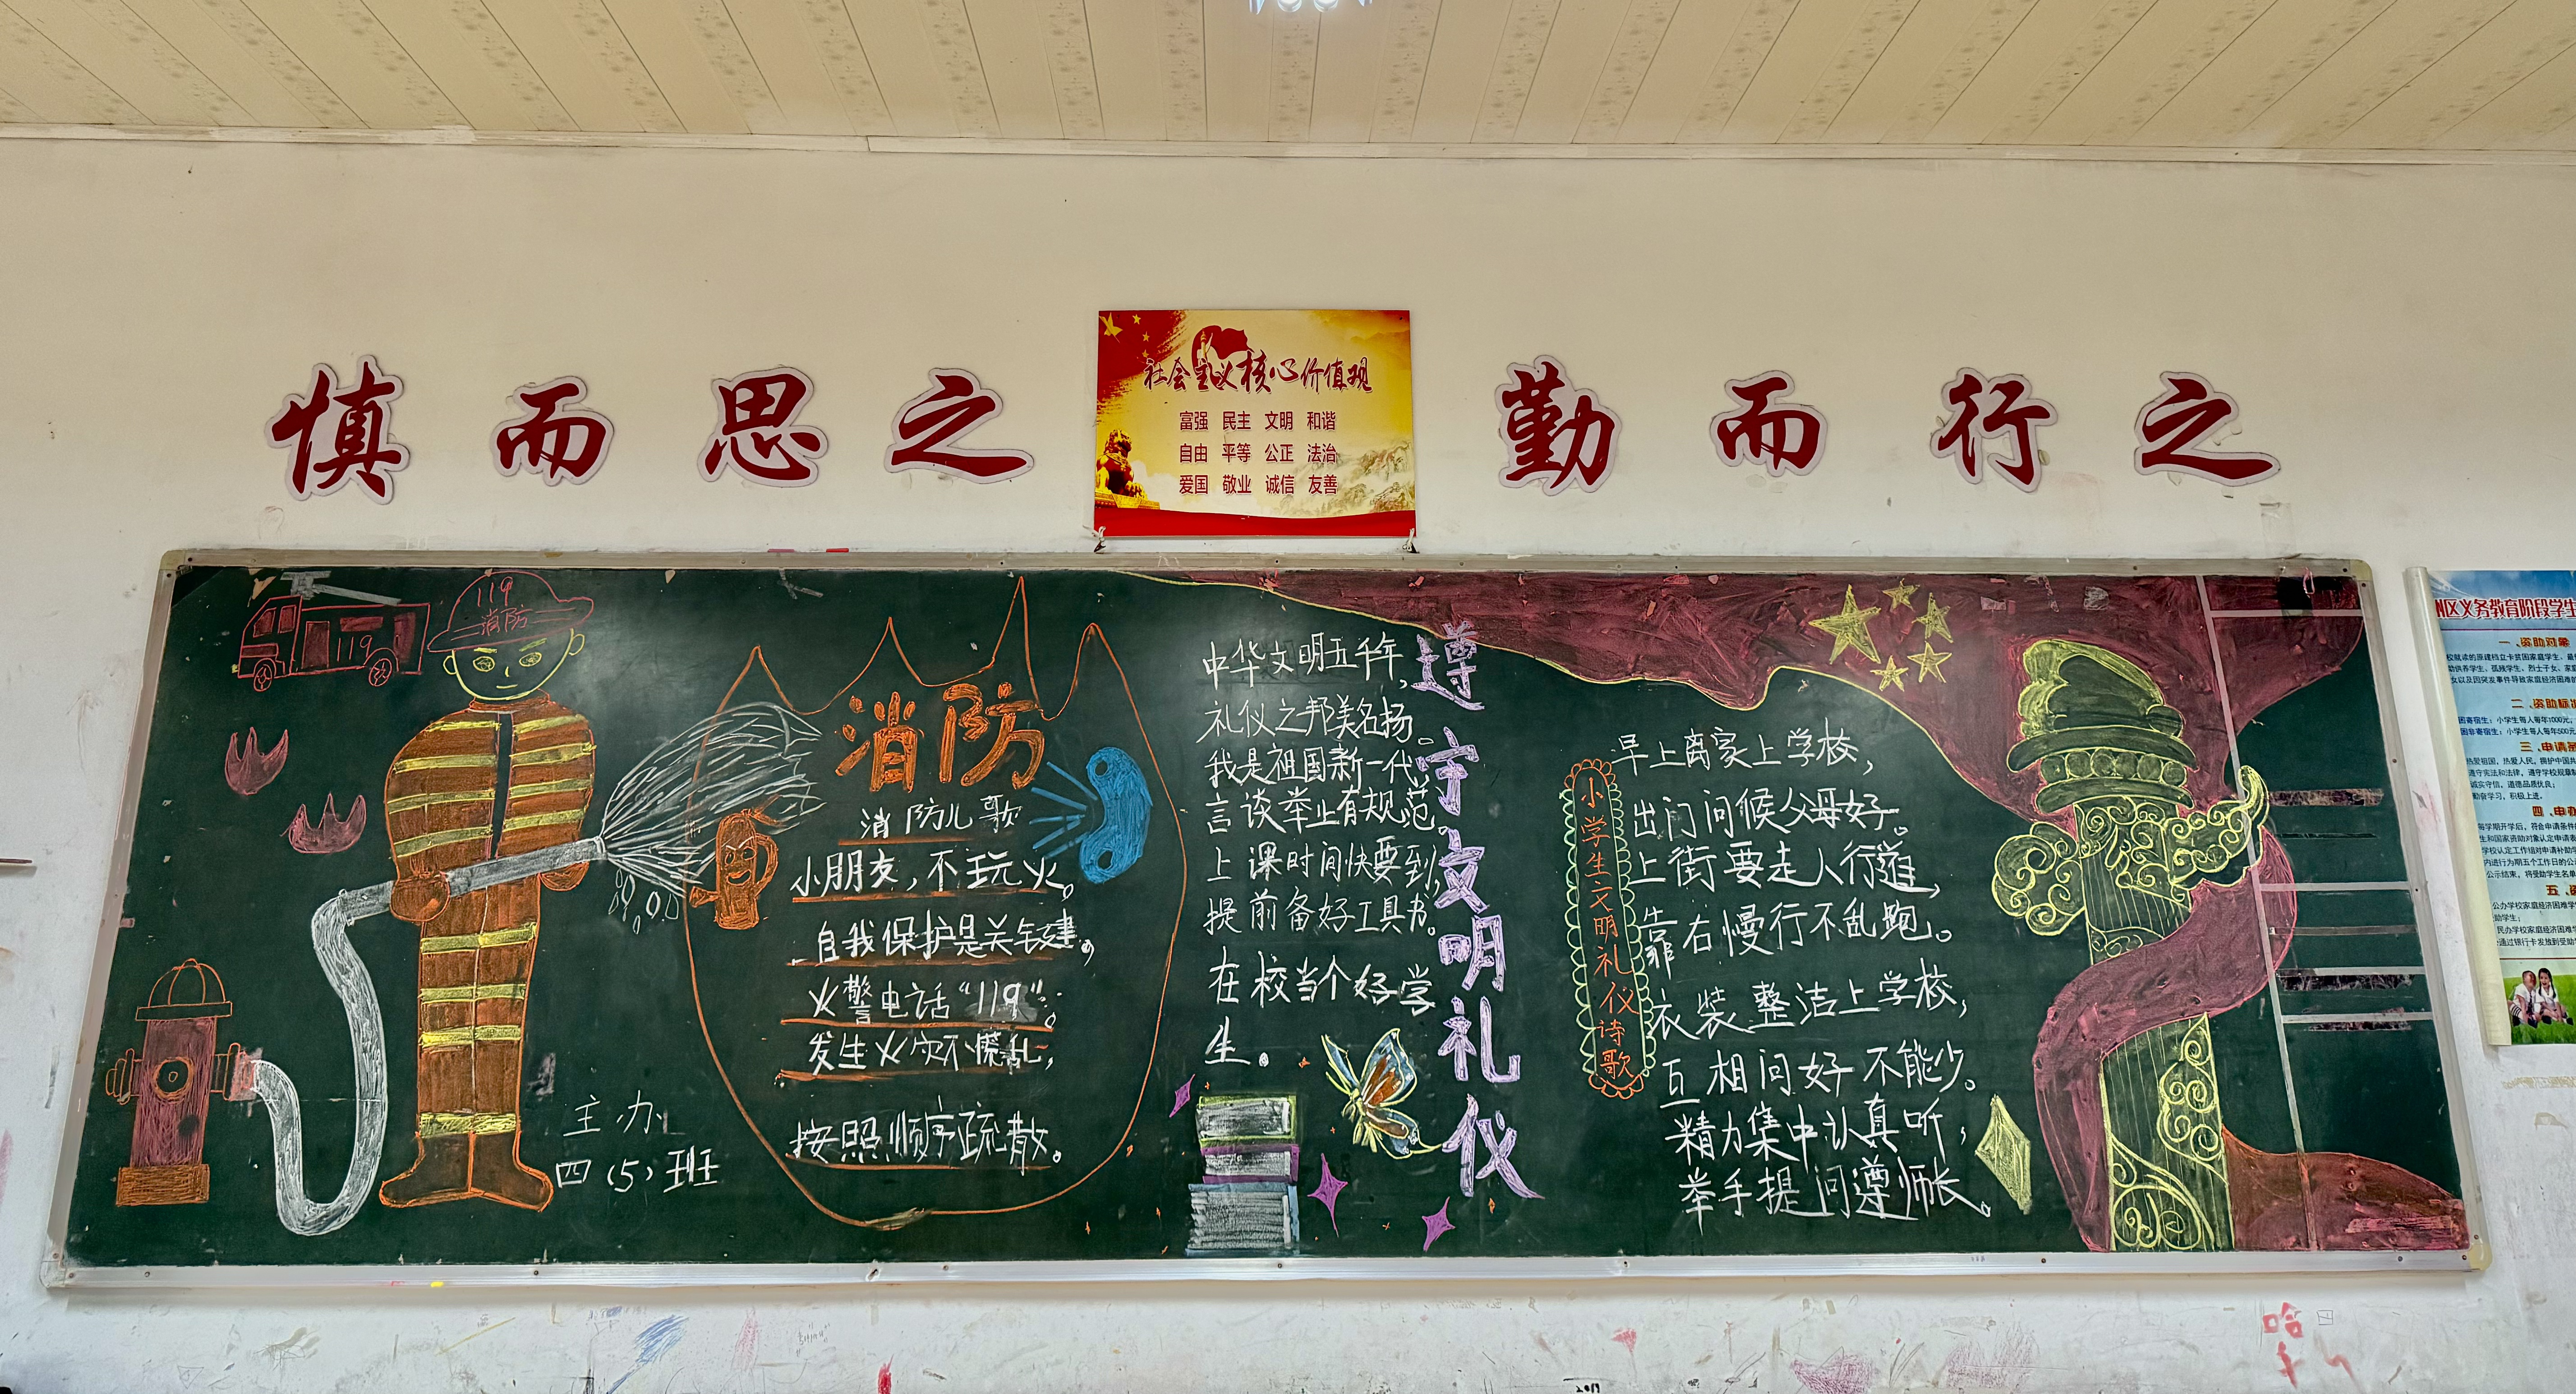 慎而思之
社会主义核心价值观
富强 民主 文明 和谐
自由 平等 公正 法治
爱国 敬业 诚信 友善
勤而行之
119
消防
119
消防
消防儿歌
小朋友，不玩火。
自我保护是关键，
火警电话“119”。
发生火灾不慌乱，
按照顺序疏散。
主办
四（5）班
中华文明五千年，
礼仪之邦美名扬。
我是祖国新一代，
言谈举止有规范。
上课时间快要到，
提前备好工具书。
在校当个好学
生。
遵守文明礼仪
小学生文明礼仪诗歌
早上离家上学校，
出门问候父母好。
上街要走人行道，
靠右慢行不乱跑。
衣装整洁上学校，
互相问好不能少。
精力集中认真听，
举手提问遵师长。
区义务教育阶段学生
一、资助对象
二、资助标准
三、申请条
四、申
五、资
哈
2019